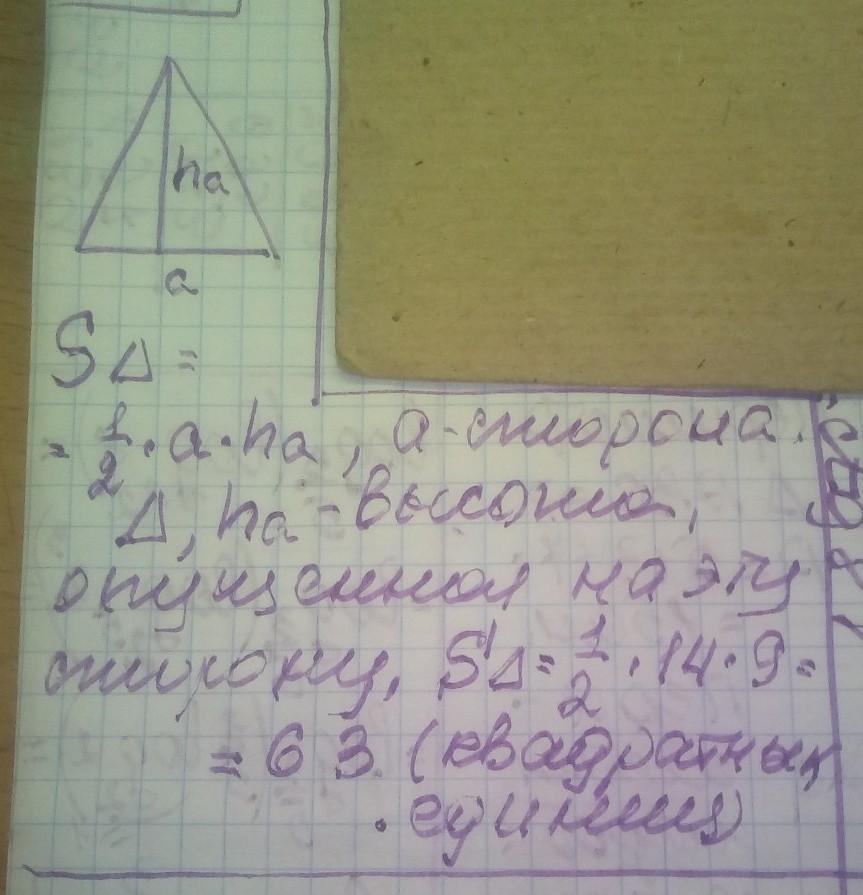 hа
а
S∆ =
= 1/2 · а · hа, а - сторона
∆, hа - высота,
опущенная на эту
сторону, S∆ = 1/2 · 14 · 9 =
= 63 (квадратных
единиц)